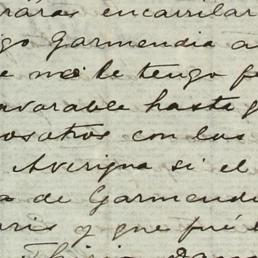 ráras encarrilar
go Garmendia a
e no le tengo fe
avorable hasta q
osotros con los
Averigua si el
a de Garmendi
aris y que fué